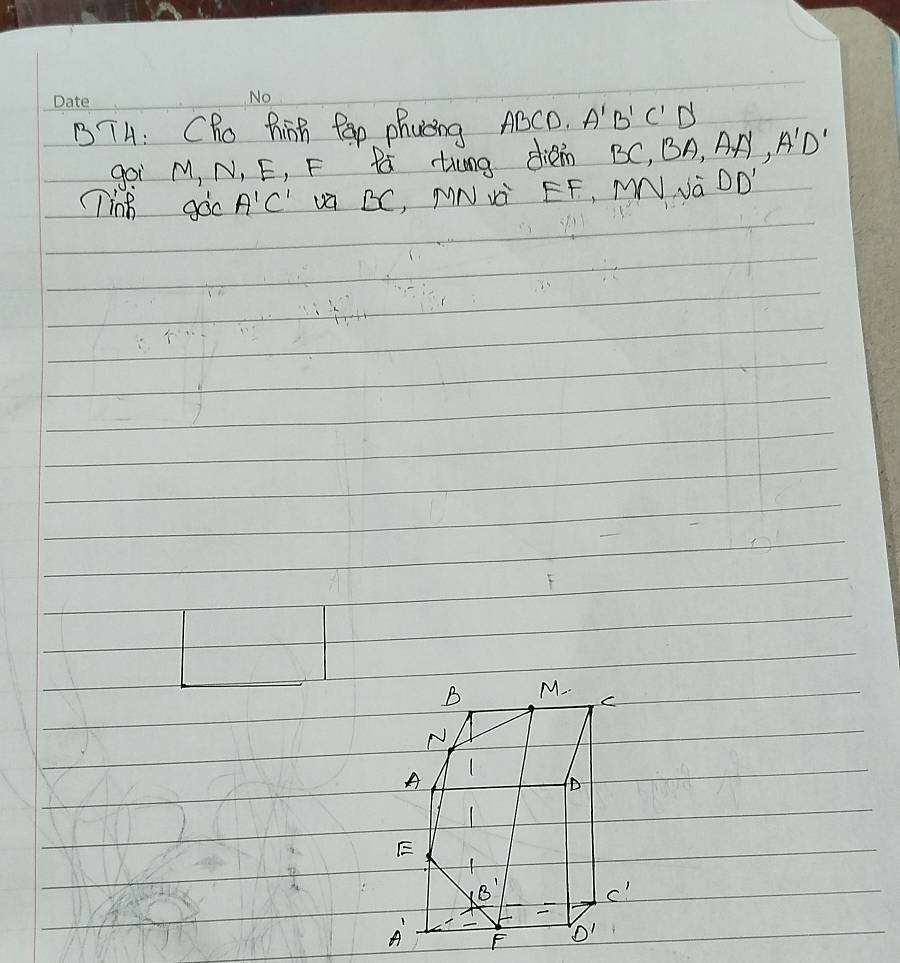 Date No
BT4: Cho hình lập phương ABCD. A'B'C'D'
gọi M, N, E, F là trung điểm BC, BA, AA', A'D'
Tính góc A'C' và BC, MN và EF, MN và DD'
B M C
N
A D
E
B' C'
A' F D'